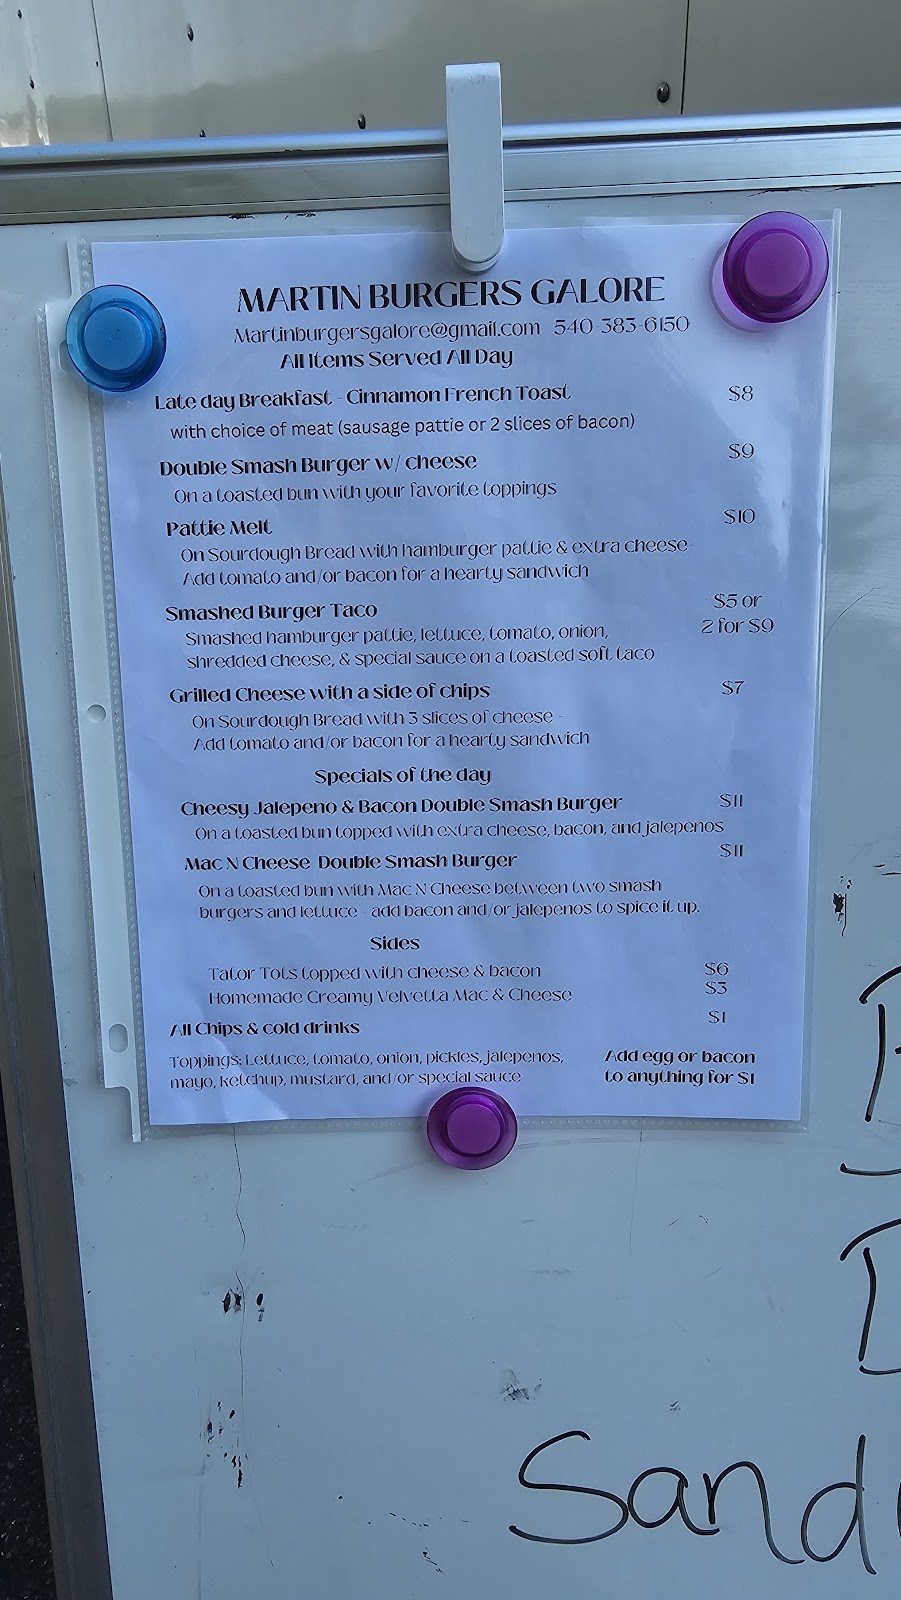 MARTIN BURGERS GALORE
Martinburgersgalore@gmail.com 540-383-6150
All Items Served All Day
Late day Breakfast - Cinnamon French Toast $8
with choice of meat (sausage pattie or 2 slices of bacon)
Double Smash Burger w/ cheese $9
On a toasted bun with your favorite toppings
Pattie Melt $10
On Sourdough Bread with hamburger pattie & extra cheese-
Add tomato and/or bacon for a hearty sandwich
Smashed Burger Taco $5 or
Smashed hamburger pattie, lettuce, tomato, onion, 2 for $9
shredded cheese, & special sauce on a toasted soft taco
Grilled Cheese with a side of chips $7
On Sourdough Bread with 3 slices of cheese -
Add tomato and/or bacon for a hearty sandwich
Specials of the day
Cheesy Jalepeno & Bacon Double Smash Burger $11
On a toasted bun topped with extra cheese, bacon, and jalepenos
Mac N Cheese Double Smash Burger $11
On a toasted bun with Mac N Cheese between two smash
burgers and lettuce - add bacon and/or jalepenos to spice it up.
Sides
Tator Tots topped with cheese & bacon $6
Homemade Creamy Velvetta Mac & Cheese $3
All Chips & cold drinks $1
Toppings: Lettuce, tomato, onion, pickles, jalepenos,
mayo, ketchup, mustard, and/or special sauce
Add egg or bacon
to anything for $1
Sand